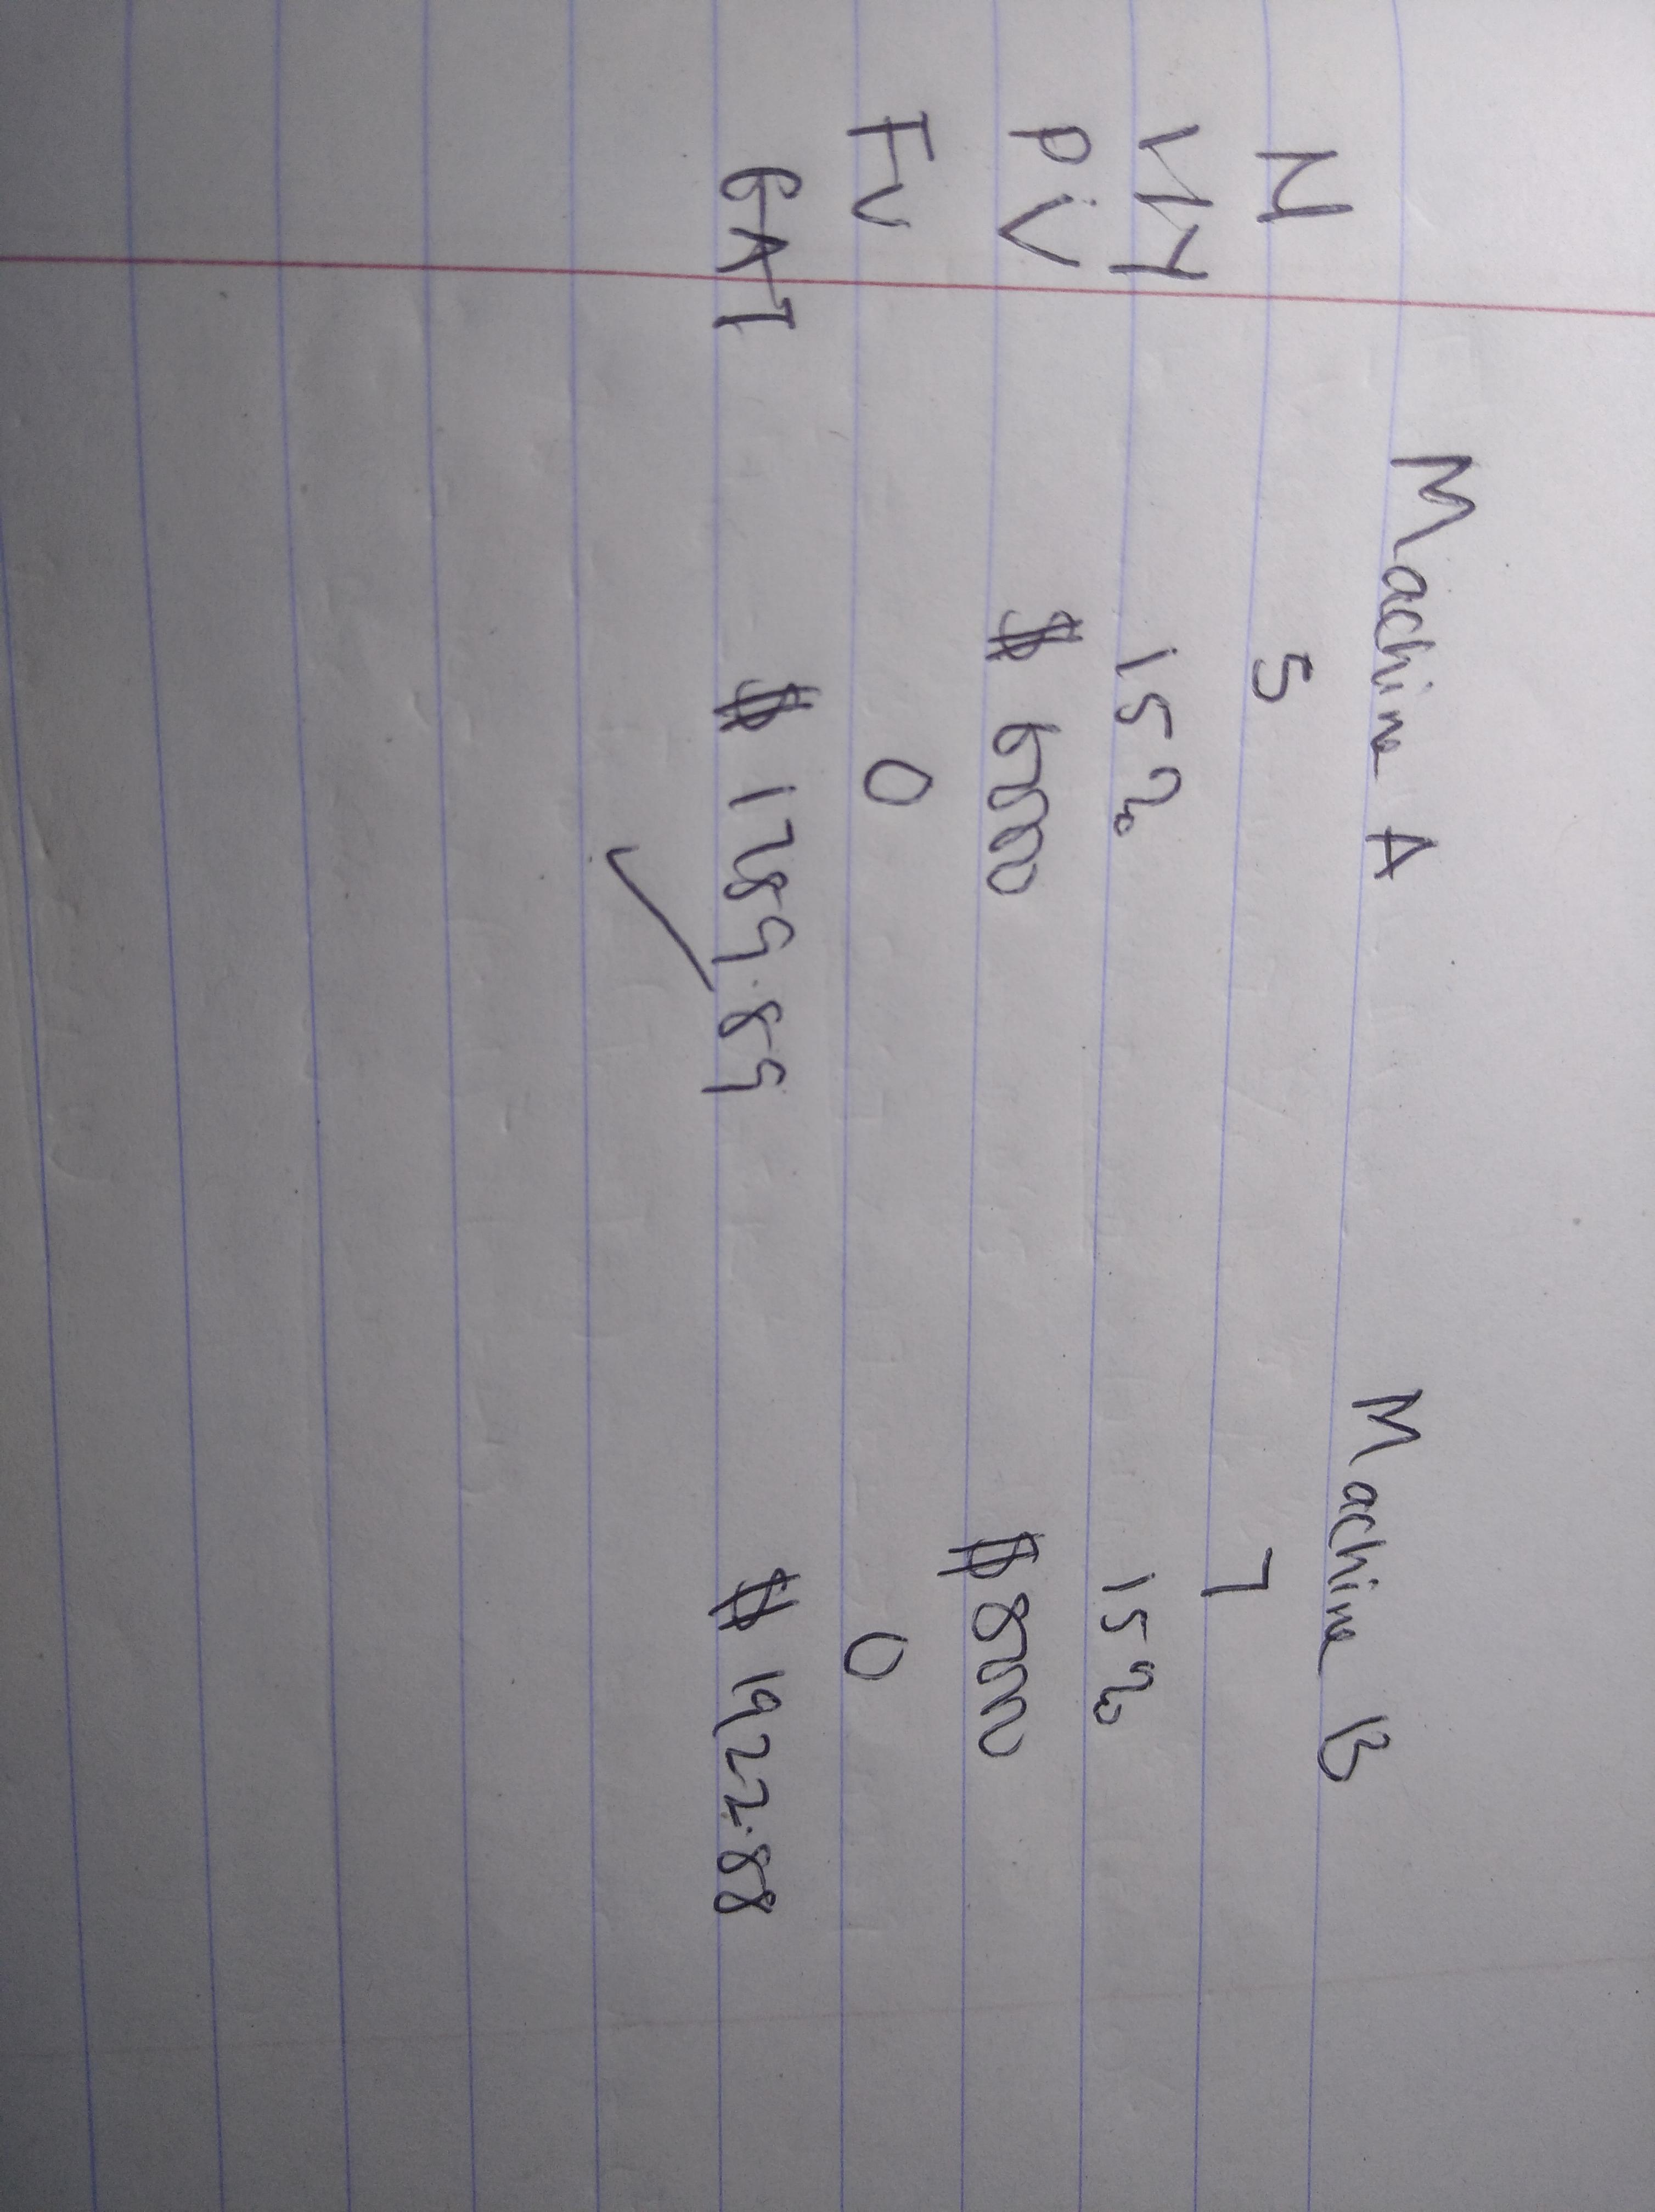 Machine A Machine B
N 5 7
I/Y 15% 15%
PV $ 6000 $8000
FV 0 0
EAT $ 1789.89 $ 1922.88